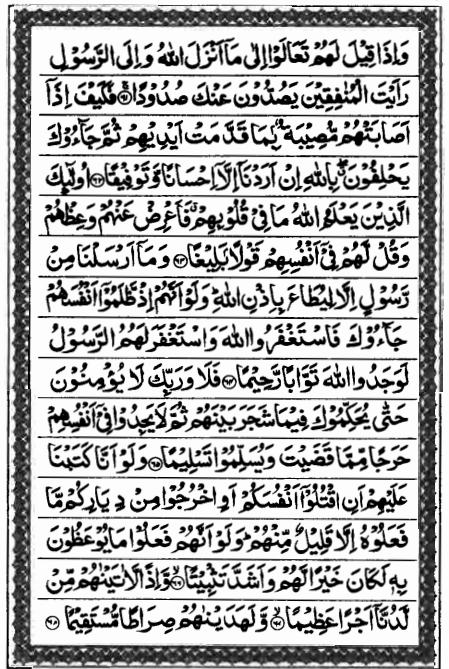 وَاِذَا قِيْلَ لَهُمْ تَعَالَوْا اِلٰى مَآ اَنْزَلَ اللّٰهُ وَاِلَى الرَّسُوْلِ
رَاَيْتَ الْمُنٰفِقِيْنَ يَصُدُّوْنَ عَنْكَ صُدُوْدًا ﴿٦١﴾ فَكَيْفَ اِذَآ
اَصَابَتْهُمْ مُّصِيْبَةٌۢ بِمَا قَدَّمَتْ اَيْدِيْهِمْ ثُمَّ جَآءُوْكَ
يَحْلِفُوْنَ ۖ بِاللّٰهِ اِنْ اَرَدْنَآ اِلَّآ اِحْسَانًا وَّتَوْفِيْقًا ﴿٦٢﴾ اُولٰٓئِكَ
الَّذِيْنَ يَعْلَمُ اللّٰهُ مَا فِيْ قُلُوْبِهِمْ ۚ فَاَعْرِضْ عَنْهُمْ وَعِظْهُمْ
وَقُلْ لَّهُمْ فِيْٓ اَنْفُسِهِمْ قَوْلًاۢ بَلِيْغًا ﴿٦٣﴾ وَمَآ اَرْسَلْنَا مِنْ
رَّسُوْلٍ اِلَّا لِيُطَاعَ بِاِذْنِ اللّٰهِ ۗ وَلَوْ اَنَّهُمْ اِذْ ظَّلَمُوْٓا اَنْفُسَهُمْ
جَآءُوْكَ فَاسْتَغْفَرُوا اللّٰهَ وَاسْتَغْفَرَ لَهُمُ الرَّسُوْلُ
لَوَجَدُوا اللّٰهَ تَوَّابًا رَّحِيْمًا ﴿٦٤﴾ فَلَا وَرَبِّكَ لَا يُؤْمِنُوْنَ
حَتّٰى يُحَكِّمُوْكَ فِيْمَا شَجَرَ بَيْنَهُمْ ثُمَّ لَا يَجِدُوْا فِيْٓ اَنْفُسِهِمْ
حَرَجًا مِّمَّا قَضَيْتَ وَيُسَلِّمُوْا تَسْلِيْمًا ﴿٦٥﴾ وَلَوْ اَنَّا كَتَبْنَا
عَلَيْهِمْ اَنِ اقْتُلُوْٓا اَنْفُسَكُمْ اَوِ اخْرُجُوْا مِنْ دِيَارِكُمْ مَّا
فَعَلُوْهُ اِلَّا قَلِيْلٌ مِّنْهُمْ ۗ وَلَوْ اَنَّهُمْ فَعَلُوْا مَا يُوْعَظُوْنَ
بِهٖ لَكَانَ خَيْرًا لَّهُمْ وَاَشَدَّ تَثْبِيْتًا ﴿٦٦﴾ وَّاِذًا لَّاٰتَيْنٰهُمْ مِّنْ
لَّدُنَّآ اَجْرًا عَظِيْمًا ﴿٦٧﴾ وَّلَهَدَيْنٰهُمْ صِرَاطًا مُّسْتَقِيْمًا ﴿٦٨﴾